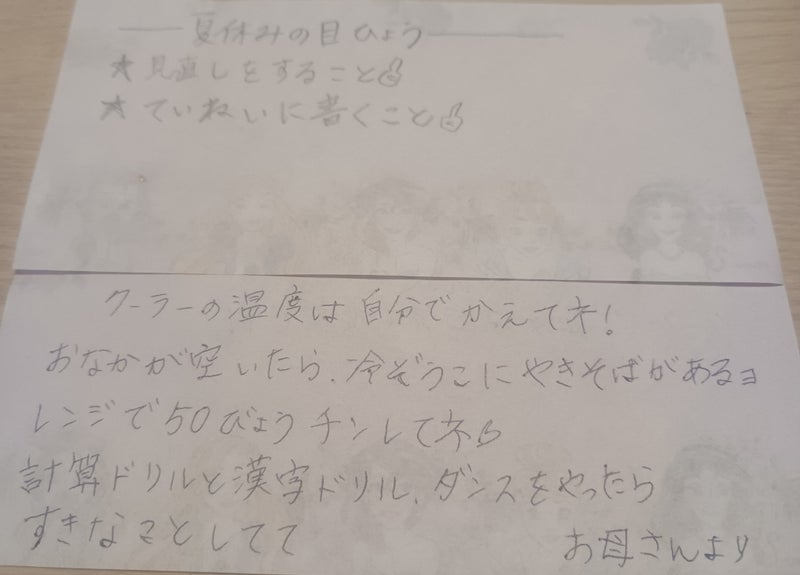 夏休みの目ひょう
★見直しをすること
★ていねいに書くこと
クーラーの温度は自分でかえてネ!
おなかが空いたら、冷ぞうこにやきそばがあるョ
レンジで50びょうチンしてネ
計算ドリルと漢字ドリル、ダンスをやったら
すきなことしてて
お母さんより